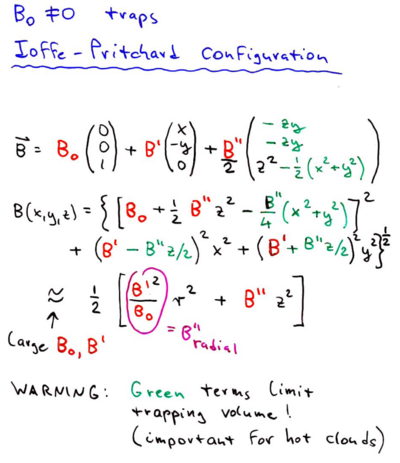 B₀ ≠ 0 traps
Ioffe-Pritchard Configuration
B⃗ = B₀ (0 0 1) + B' (x -y 0) + B''/2 (-zy -zy z² - ½(x²+y²))
B(x,y,z) = {[B₀ + ½ B'' z² - B''/4 (x²+y²)]²
+ (B' - B''z/2)² x² + (B' + B''z/2)² y²}^½
≈ ½ [B'²/B₀ r² + B'' z²]
= B''radial
Large B₀, B'
WARNING: Green terms limit
trapping volume!
(important for hot clouds)